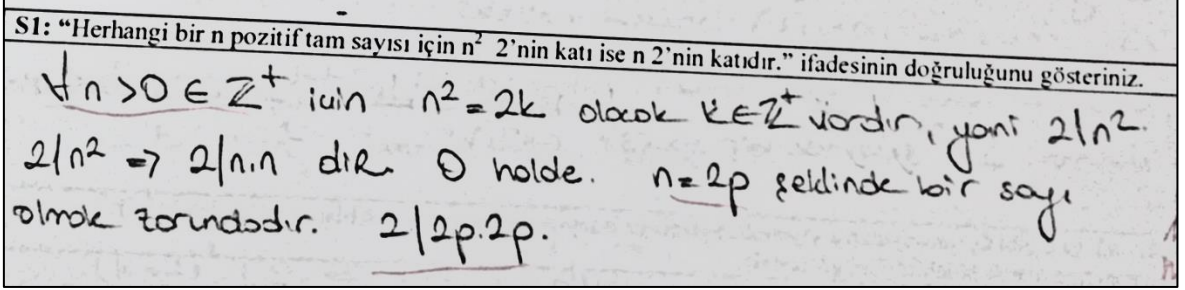 S1: “Herhangi bir n pozitif tam sayısı için n² 2’nin katı ise n 2’nin katıdır.” ifadesinin doğruluğunu gösteriniz.
∀n>0 ∈ Z⁺ için n² = 2k olacak k∈Z⁺ vardır, yani 2|n².
2|n² => 2|n.n dir. O halde. n=2p şeklinde bir sayı
olmak zorundadır. 2|2p.2p.